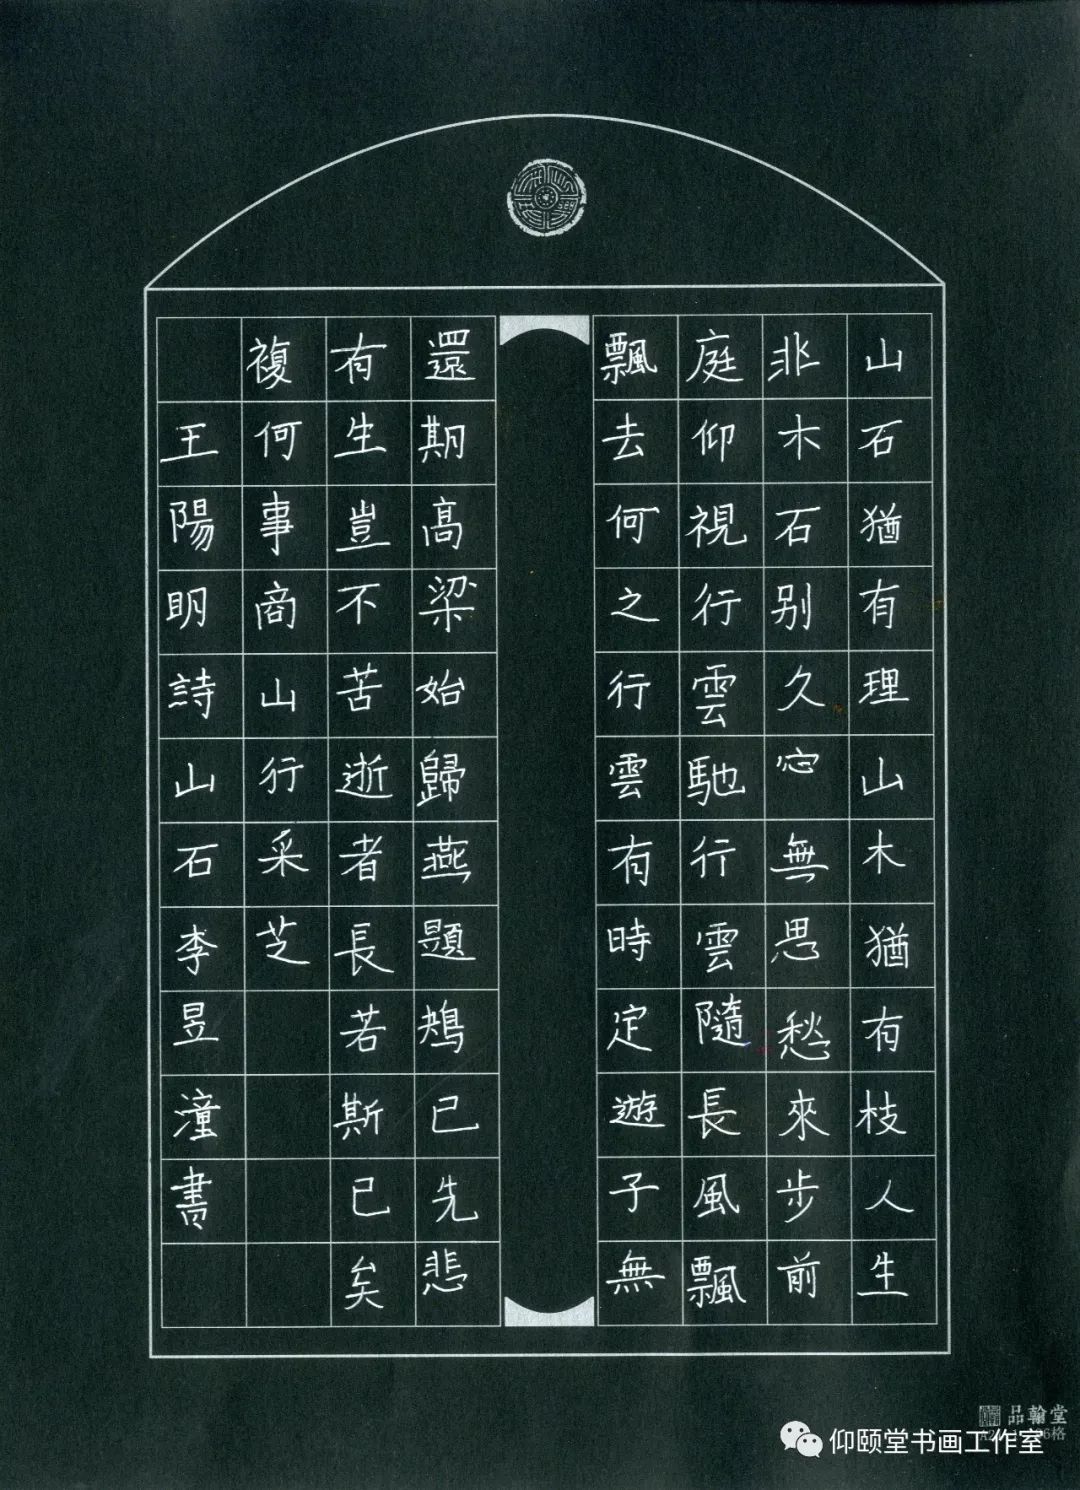 山石猶有理山木猶有枝人生
非木石别久寍無思愁來步前
庭仰視行雲馳行雲隨長風飄
飄去何之行雲有時定遊子無
還期高梁始歸燕題鴂已先悲
有生豈不苦逝者長若斯已矣
複何事商山行采芝
王陽明詩山石李昱潼書
品翰堂
仰颐堂书画工作室